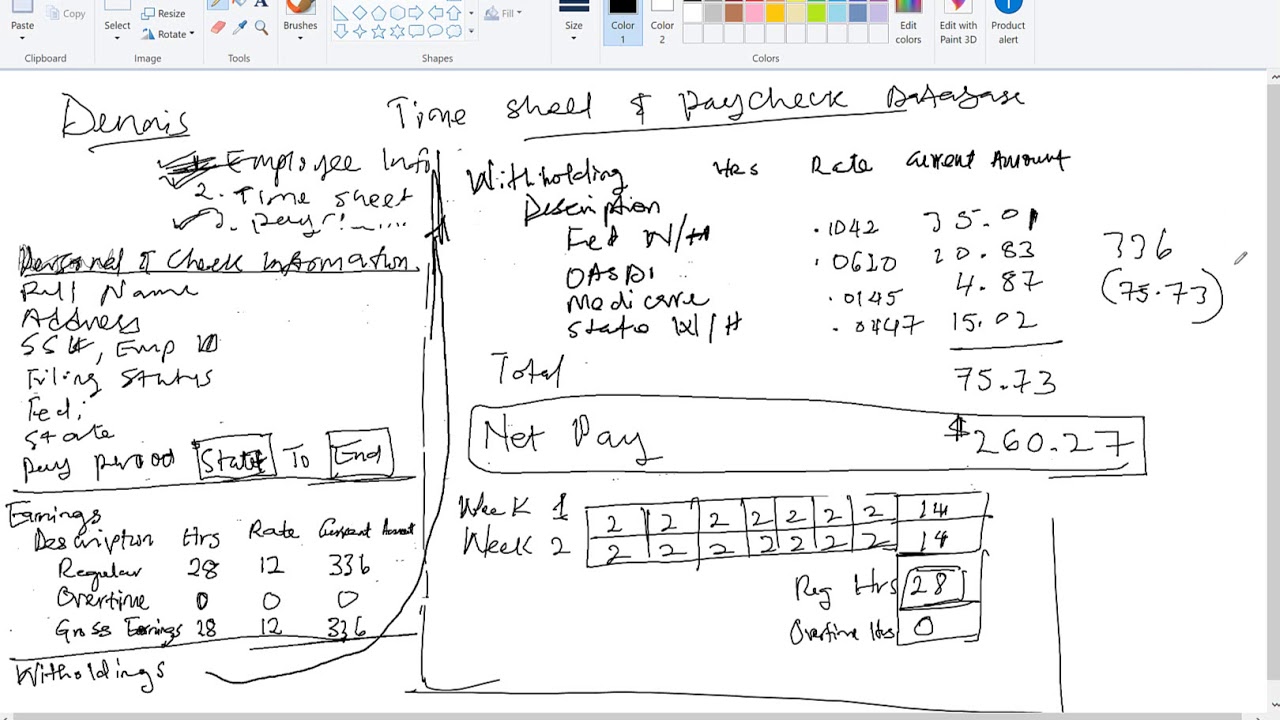 Paste
Copy
Clipboard
Select
Resize
Rotate
Image
Tools
Brushes
Shapes
Fill
Size
Color 1
Color 2
Colors
Edit colors
Edit with Paint 3D
Product alert
Dennis
Time sheet & paycheck Database
Employee Info
2. Time sheet
3. pay
Personal & Check Information
Full Name
Address
SS#, Emp ID
Filing Status
Fed;
State
Pay period Start To End
Earnings
Description Hrs Rate Current Amount
Regular 28 12 336
Overtime 0 0 0
Gross Earnings 28 12 336
Witholdings
Withholding Hrs Rate Current Amount
Description
Fed W/H .1042 35.01
OASDI .0620 20.83
Medicare .0145 4.87
State W/H .0447 15.02
Total 75.73
336
(75.73)
Net Pay $260.27
Week 1 2 2 2 2 2 2 2 14
Week 2 2 2 2 2 2 2 2 14
Reg Hrs 28
Overtime Hrs 0